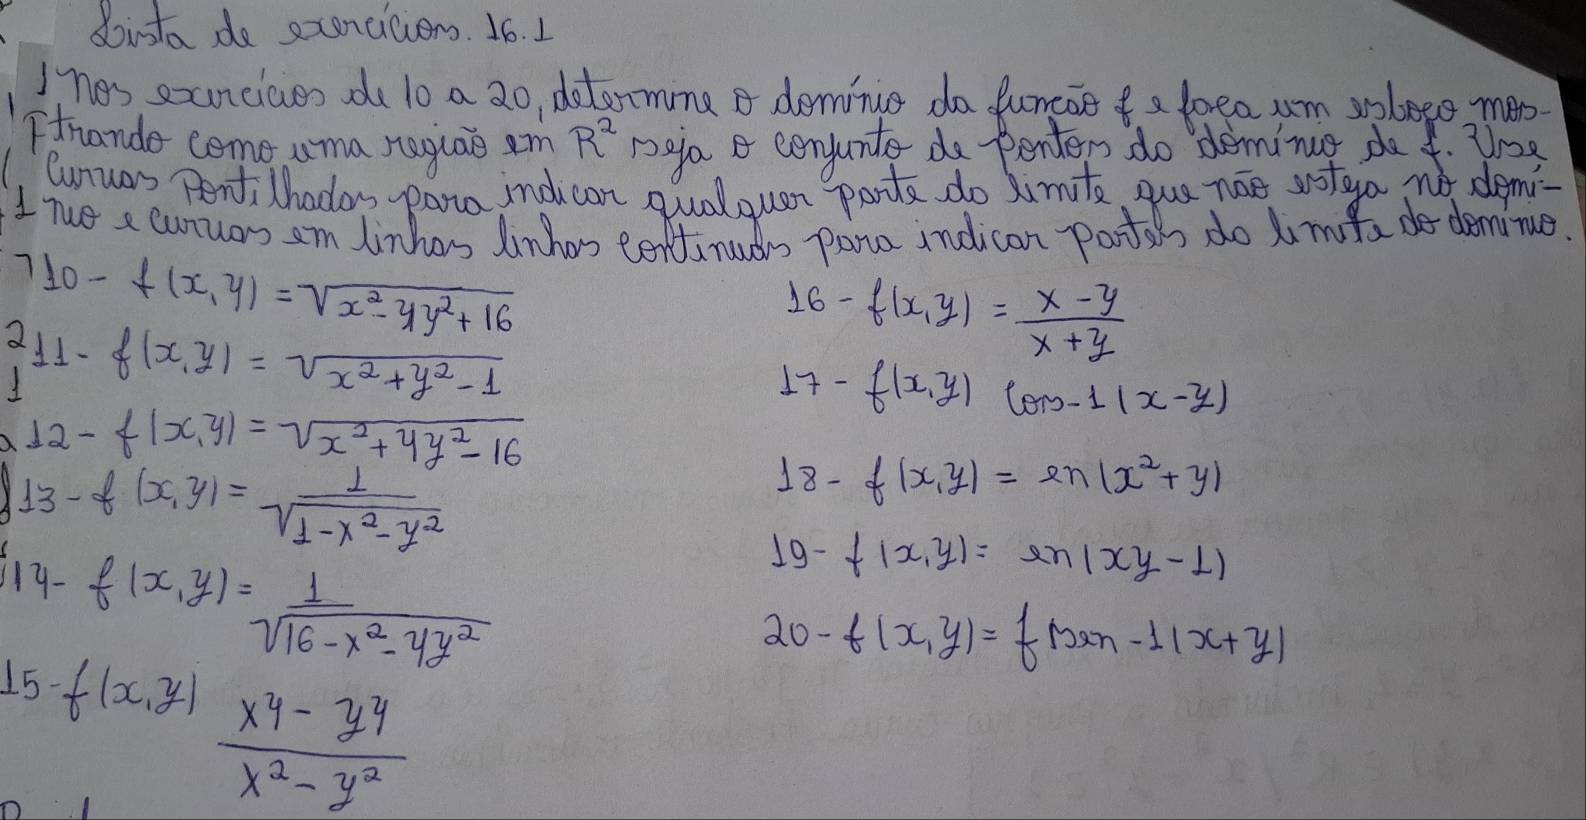 Lista de exercícios. 16.1
Nos exercícios de 10 a 20, determine o domínio da função f e faça um esboço mos-
trando como uma região em R² seja o conjunto de pontos do domínio de f. Use
curvas pontilhadas para indicar qualquer parte do limite que não esteja no domí-
nio e curvas em linhas linhas continuas para indicar partes do limite do domínio.
10 - f(x,y) = √x² - 4y² + 16
11 - f(x,y) = √x² + y² - 1
12 - f(x,y) = √x² + 4y² - 16
13 - f(x,y) = 1/√1 - x² - y²
14 - f(x,y) = 1/√16 - x² - 4y²
15 - f(x,y) x4 - y4/x² - y²
16 - f(x,y) = x - y/x + y
17 - f(x,y) cos-1(x-y)
18 - f(x,y) = en(x²+y)
19 - f(x,y) = en(xy-1)
20 - f(x,y) = f sen-1(x+y)